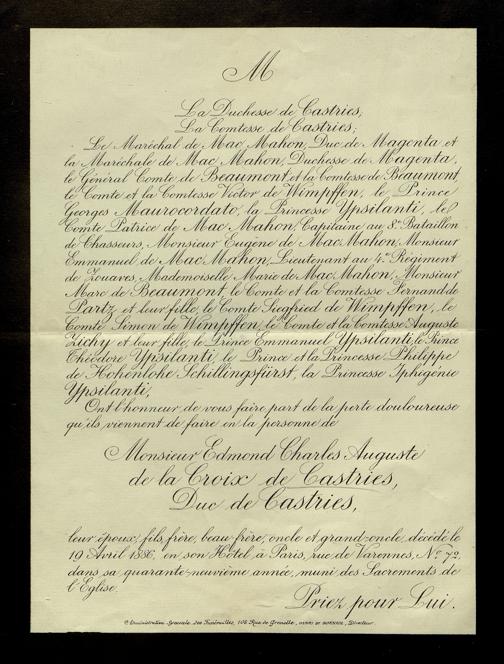 M
La Duchesse de Castries,
La Comtesse de Castries;
Le Maréchal de Mac Mahon, Duc de Magenta et
la Maréchale de Mac Mahon, Duchesse de Magenta,
le Général Comte de Beaumont et la Comtesse de Beaumont,
le Comte et la Comtesse Victor de Wimpffen, le Prince
Georges Maurocordato, la Princesse Ypsilanti, le
Comte Patrice de Mac Mahon, Capitaine au 8me Bataillon
de Chasseurs, Monsieur Eugène de Mac Mahon, Monsieur
Emmanuel de Mac Mahon, Lieutenant au 4me Régiment
de Zouaves, Mademoiselle Marie de Mac Mahon, Monsieur
Marc de Beaumont, le Comte et la Comtesse Fernand de
Partz et leur fille, le Comte Siegfried de Wimpffen, le
Comte Simon de Wimpffen, le Comte et la Comtesse Auguste
Zichy et leur fille, le Prince Emmanuel Ypsilanti, le Prince
Théodore Ypsilanti, le Prince et la Princesse Philippe
de Hohenlohe Schillingsfürst, la Princesse Iphigénie
Ypsilanti,
Ont l'honneur de vous faire part de la perte douloureuse
qu'ils viennent de faire en la personne de
Monsieur Edmond Charles Auguste
de la Croix de Castries,
Duc de Castries,
leur époux, fils, frère, beau-frère, oncle et grand-oncle, décédé le
19 Avril 1886, en son Hôtel, à Paris, rue de Varennes, No 72,
dans sa quarante-neuvième année, muni des Sacrements de
l'Eglise.
Priez pour Lui.
Administration Spéciale des Funérailles, 108 Rue de Grenelle, HENRI DE BORNIOL, Directeur.